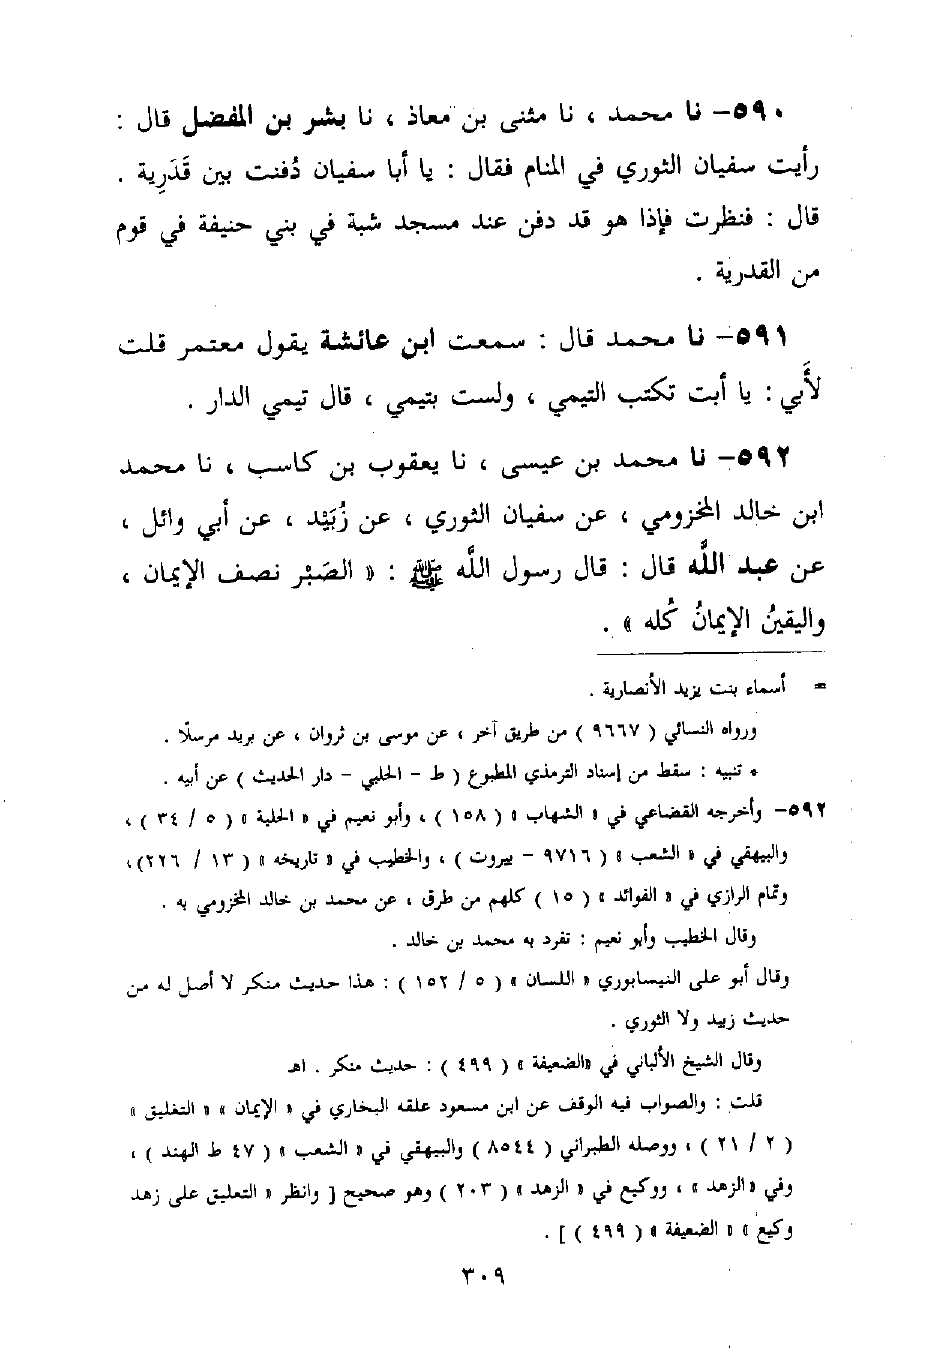 ٥٩٠- نا محمد ، نا مثنى بن معاذ ، نا بشر بن المفضل قال :
رأيت سفيان الثوري في المنام فقال : يا أبا سفيان دُفنت بين قَدَرِية .
قال : فنظرت فإذا هو قد دفن عند مسجد شبة في بني حنيفة في قوم
من القدرية .
٥٩١- نا محمد قال : سمعت ابن عائشة يقول معتمر قلت
لأَبي : يا أبت تكتب التيمي ، ولست بتيمي ، قال تيمي الدار .
٥٩٢- نا محمد بن عيسى ، نا يعقوب بن كاسب ، نا محمد
ابن خالد المخزومي ، عن سفيان الثوري ، عن زُبَيْد ، عن أبي وائل ،
عن عبد اللَّه قال : قال رسول اللَّه ﷺ : « الصَبْر نصف الإيمان ،
واليقينُ الإيمانُ كُله » .
= أسماء بنت يزيد الأنصارية .
ورواه النسائي ( ٩٦٦٧ ) من طريق آخر ، عن موسى بن ثروان ، عن بريد مرسلًا .
* تنبيه : سقط من إسناد الترمذي المطبوع ( ط - الحلبي - دار الحديث ) عن أبيه .
٥٩٢- وأخرجه القضاعي في « الشهاب » ( ١٥٨ ) ، وأبو نعيم في « الحلية » ( ٥ / ٣٤ ) ،
والبيهقي في « الشعب » ( ٩٧١٦ - بيروت ) ، والخطيب في « تاريخه » ( ١٣ / ٢٢٦ )،
وتمام الرازي في « الفوائد » ( ١٥ ) كلهم من طرق ، عن محمد بن خالد المخزومي به .
وقال الخطيب وأبو نعيم : تفرد به محمد بن خالد .
وقال أبو على النيسابوري « اللسان » ( ٥ / ١٥٢ ) : هذا حديث منكر لا أصل له من
حديث زبيد ولا الثوري .
وقال الشيخ الألباني في «الضعيفة » ( ٤٩٩ ) : حديث منكر . اهـ
قلت : والصواب فيه الوقف عن ابن مسعود علقه البخاري في « الإيمان » « التغليق »
( ٢ / ٢١ ) ، ووصله الطبراني ( ٨٥٤٤ ) والبيهقي في « الشعب » ( ٤٧ ط الهند ) ،
وفي «الزهد » ، ووكيع في « الزهد » ( ٢٠٣ ) وهو صحيح [ وانظر « التعليق على زهد
وكيع » « الضعيفة » ( ٤٩٩ ) ] .
٣٠٩